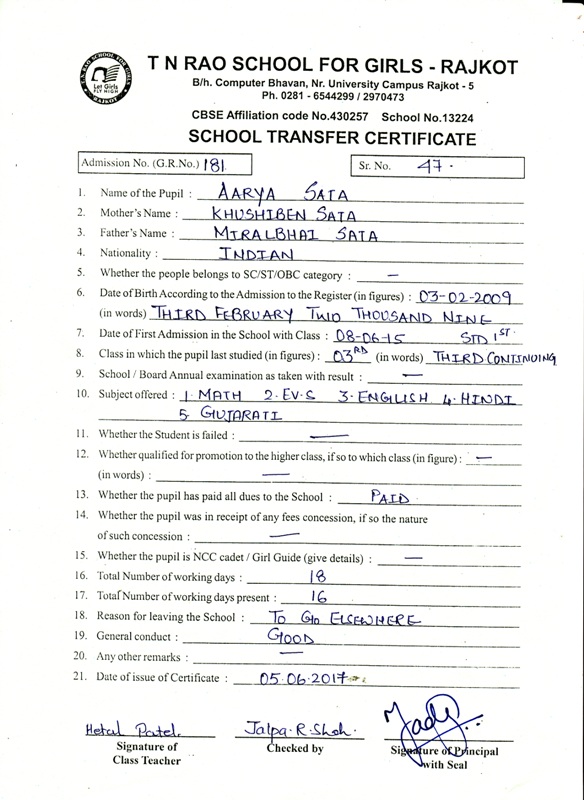 T.N. RAO SCHOOL FOR GIRLS
Let Girls
FLY HIGH
RAJKOT
T N RAO SCHOOL FOR GIRLS - RAJKOT
B/h. Computer Bhavan, Nr. University Campus Rajkot - 5
Ph. 0281 - 6544299 / 2970473
CBSE Affiliation code No.430257 School No.13224
SCHOOL TRANSFER CERTIFICATE
Admission No. (G.R.No.) 181 Sr. No. 47.
1. Name of the Pupil : AARYA SATA
2. Mother's Name : KHUSHIBEN SATA
3. Father's Name : MIRALBHAI SATA
4. Nationality : INDIAN
5. Whether the people belongs to SC/ST/OBC category : —
6. Date of Birth According to the Admission to the Register (in figures) : 03-02-2009
(in words) THIRD FEBRUARY TWO THOUSAND NINE
7. Date of First Admission in the School with Class : 08-06-15 STD 1ST.
8. Class in which the pupil last studied (in figures) : 03RD (in words) THIRD CONTINUING
9. School / Board Annual examination as taken with result : —
10. Subject offered : 1. MATH 2. EV.S 3. ENGLISH 4. HINDI
5. GUJARATI
11. Whether the Student is failed : —
12. Whether qualified for promotion to the higher class, if so to which class (in figure) : —
(in words) : —
13. Whether the pupil has paid all dues to the School : PAID
14. Whether the pupil was in receipt of any fees concession, if so the nature
of such concession : —
15. Whether the pupil is NCC cadet / Girl Guide (give details) : —
16. Total Number of working days : 18
17. Total Number of working days present : 16
18. Reason for leaving the School : TO GO ELSEWHERE
19. General conduct : GOOD
20. Any other remarks : —
21. Date of issue of Certificate : 05.06.2017
Hetal Patel. Jalpa.R.Shah.
Signature of Checked by Signature of Principal
Class Teacher with Seal